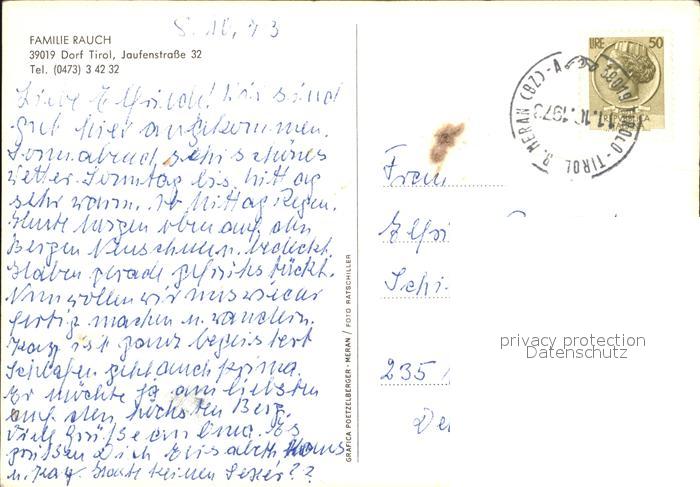 8.10.73
FAMILIE RAUCH
39019 Dorf Tirol, Jaufenstraße 32
Tel. (0473) 3 42 32
Liebe Elfriede! Wir sind
gut hier angekommen.
Sonnabend sehr schönes
Wetter Sonntag bis Mittag
sehr warm. Ab Mittag Regen.
Heute Morgen oben auf den
Bergen Neuschnee bedeckt.
Haben gerade gefrühstückt.
Nun wollen wir uns wieder
fertig machen u. wandern.
Kay ist ganz begeistert
Schlafen geht auch prima.
Er möchte ja am liebsten
auf den höchsten Berg.
Viele Grüße an Oma. Es
grüßen Dich Elisabeth Hans
u. Kay. Heute keinen
GRAFICA POETZELBERGER - MERAN / FOTO RATSCHILLER
LIRE 50
TIROLO - TIROL B. MERAN (BZ) - A
39019
11.10.1973
Frau
Elfri
Schi
235
privacy protection
Datenschutz